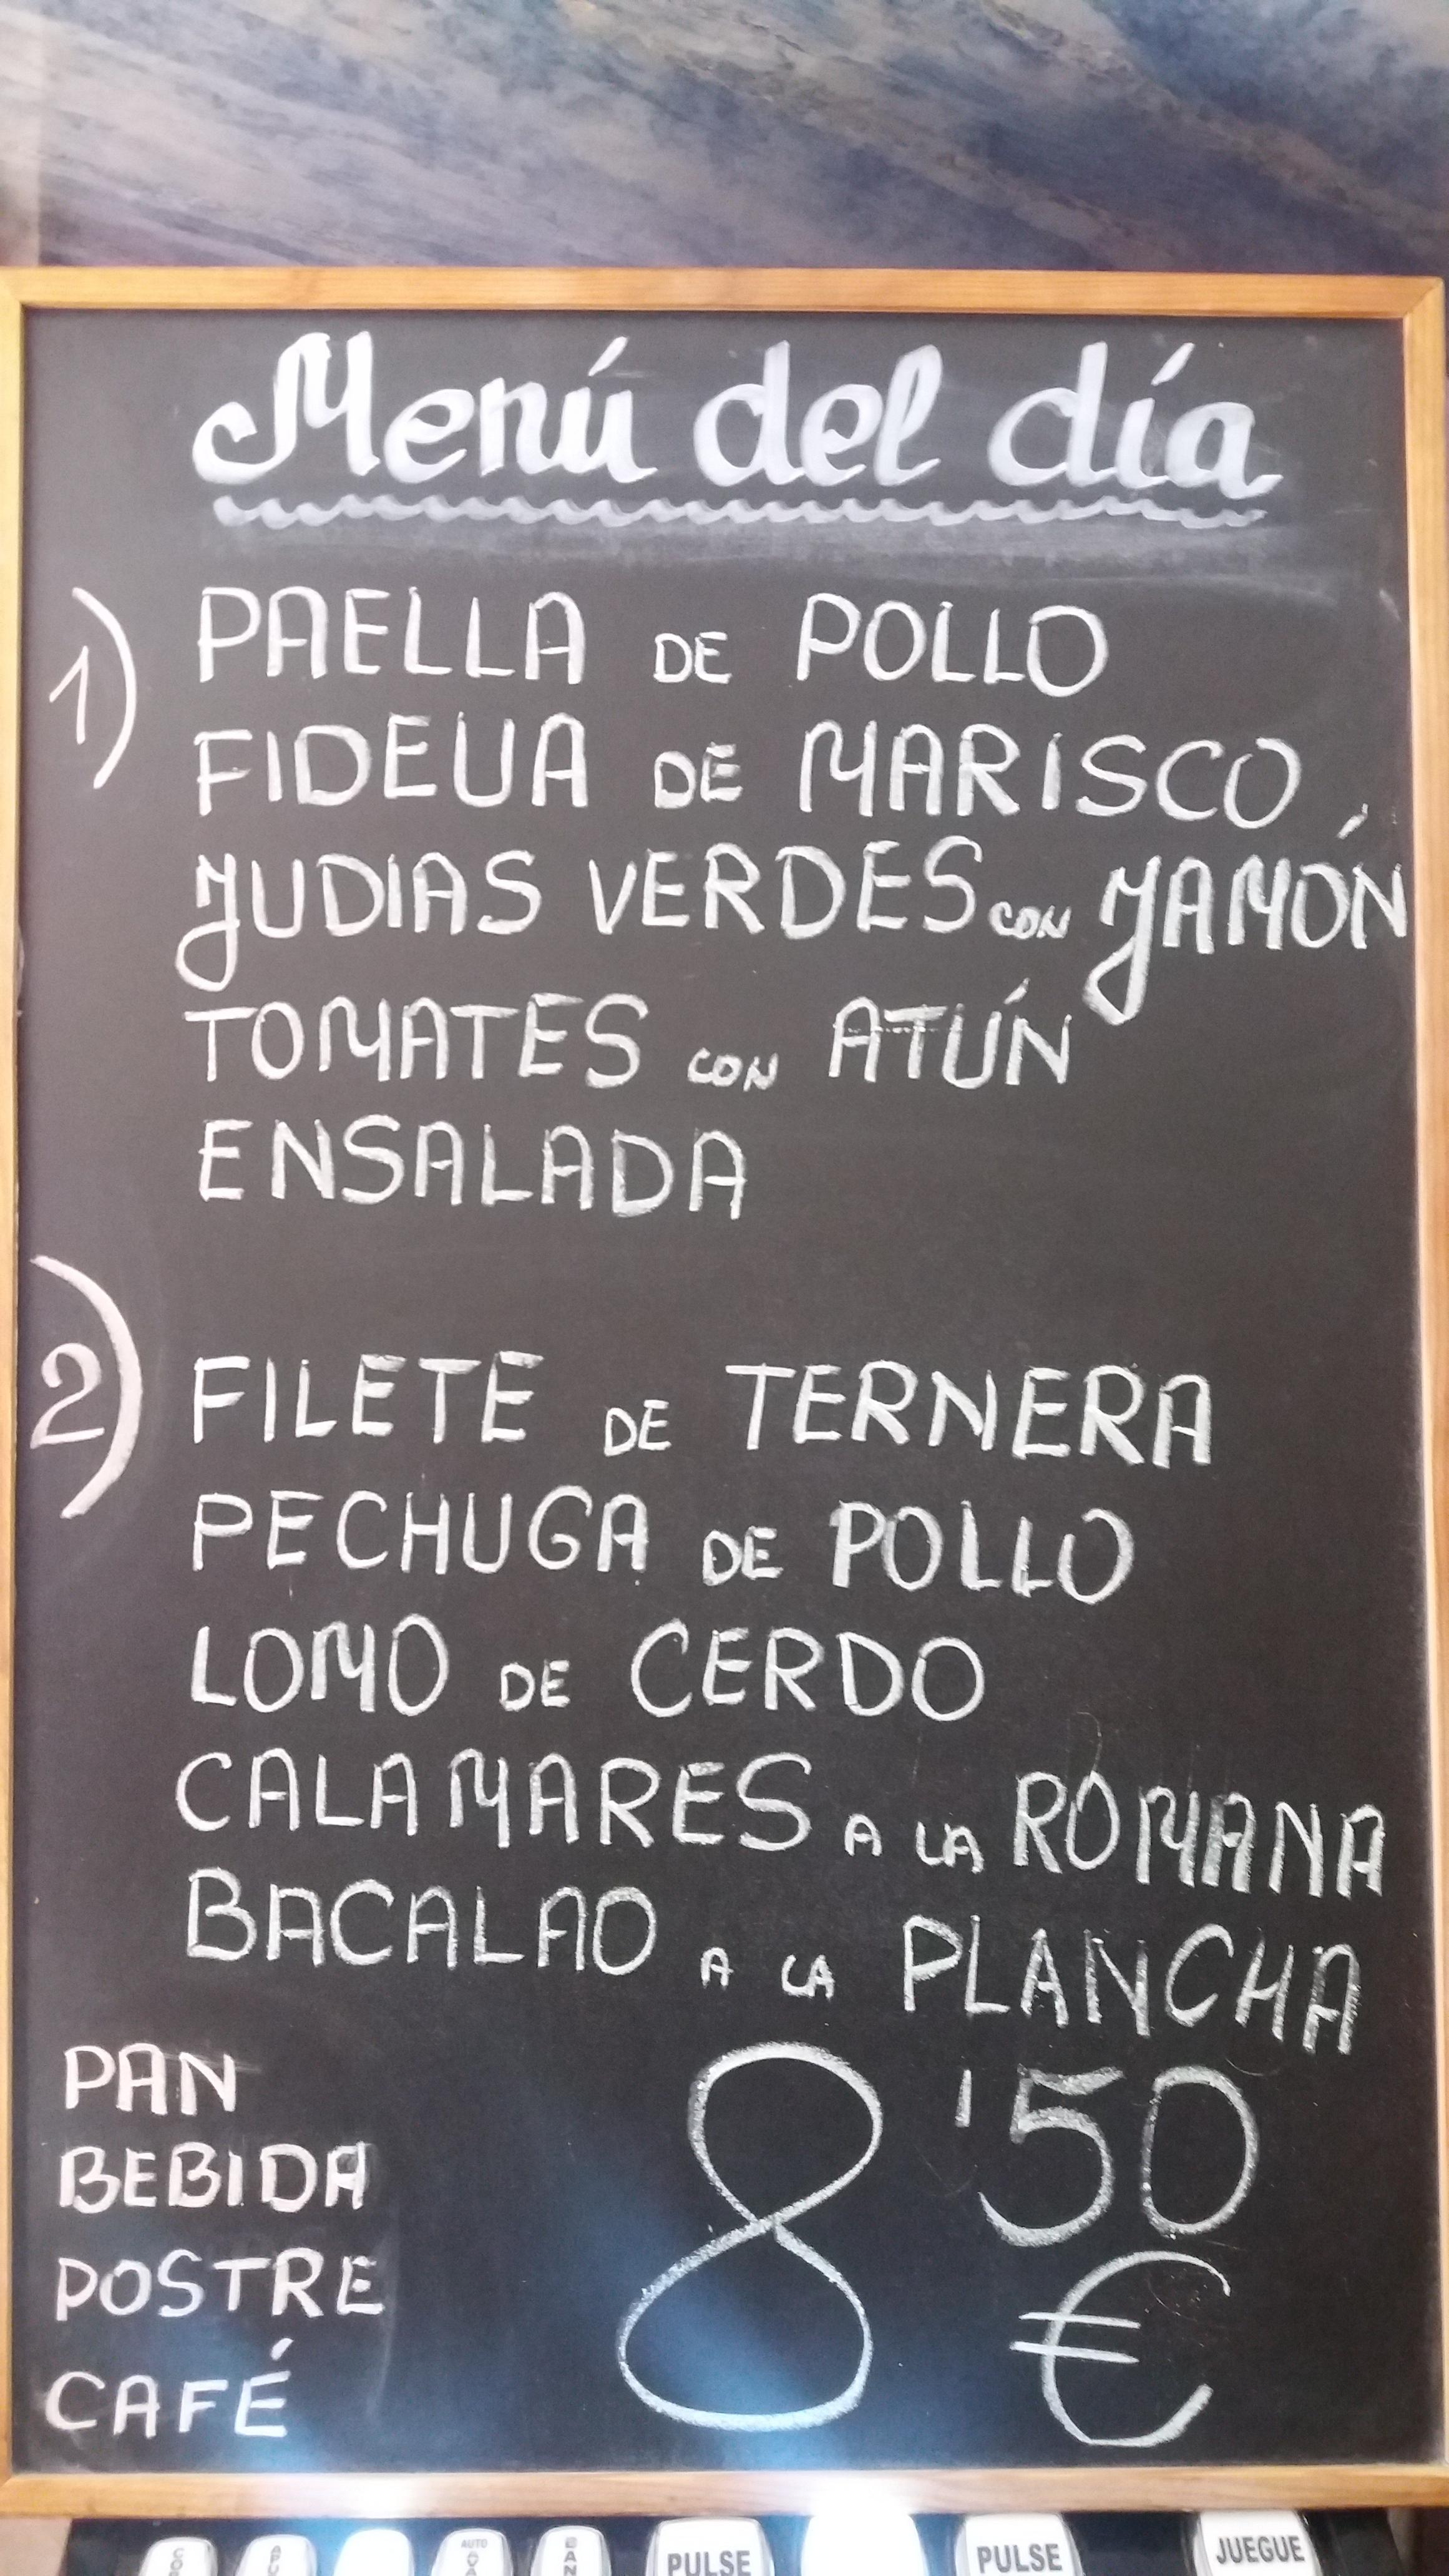 Menú del día
1) PAELLA DE POLLO
FIDEUA DE MARISCO
JUDIAS VERDES CON JAMÓN
TOMATES CON ATÚN
ENSALADA
2) FILETE DE TERNERA
PECHUGA DE POLLO
LOMO DE CERDO
CALAMARES A LA ROMANA
BACALAO A LA PLANCHA
PAN
BEBIDA
POSTRE
CAFÉ
8'50
€
AUTO
PULSE
PULSE
JUEGUE